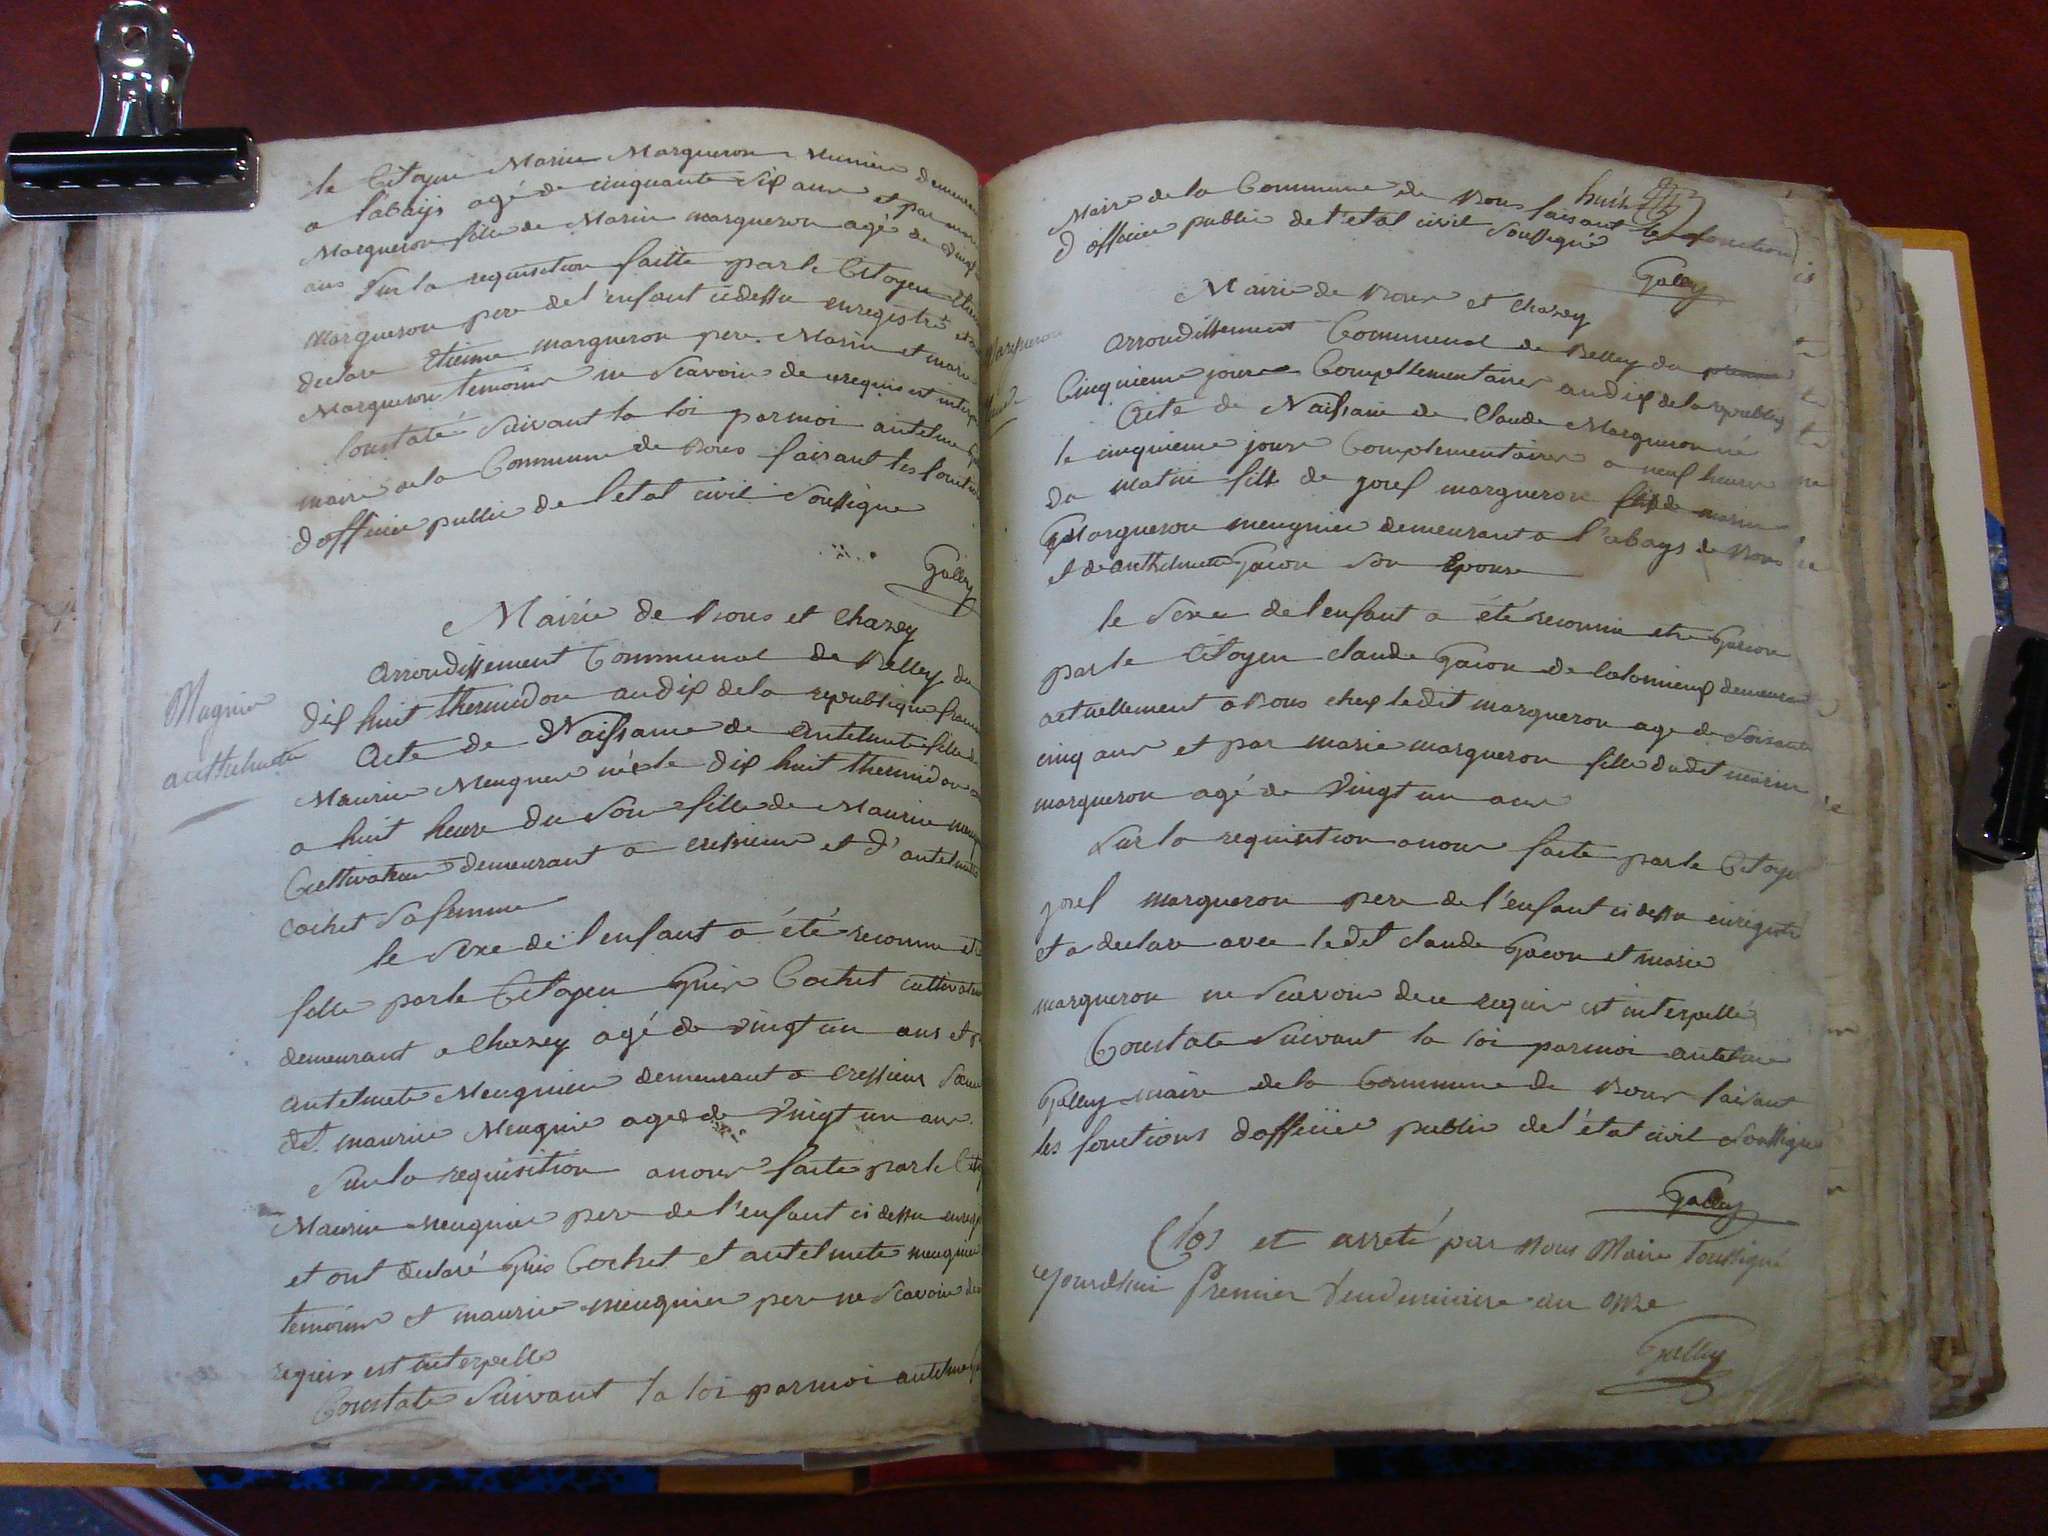 le Citoyen Marin Margueron Munier demeurant
a l'abaÿs agé de cinquante six ans et par marie
Margueron fille de Marin margueron agé de vingt
ans Sur la requisition faitte par le Citoyen Etienne
Margueron pere de l'enfant ci dessu enregistré et a
declare Etienne margueron pere. Marin et marie
Margueron temoins ne Scavoir de ce requis et interp
Constaté Suivant la loi par moi antelme
maire de la Commune de Rous faisant les fonction
d officier public de l'etat civil Soussigne
Galley
Mairie de Rous et Chazey
Magnin
anthelmette
arrondissement Communal de Belley du
dix huit thermidor an dix de la republique francai
Acte de Naissance de Antelmette fille de
Maurice Meugnier née le dix huit thermidor
a huit heure du Soir fille de Maurice meug
Cultivateur demeurant a cressieux et d'antelmette
Cochet Sa femme
le Sexe de l'enfant a été reconnu etre
fille par le Citoyen Guis Cochet cultivateur
demeurant a Chazey agé de vingt un ans et p
antelmette Meugnier demeurant a cressieux Soeur
dt. maurice Meugnie agee de vingt un ans.
Sur la requisition a nous faite par le Cit
Maurice Meugnier pere de l'enfant ci dessu enregi
et ont declaré Guis Cochet et antelmete meugnier
temoins et maurice meugnier pere ne Scavoir de
requis est interpelle
Constate Suivant la loi par moi antelme
huit
Maire de la Commune de Rous faisant les fonction
d officier public de l'etat civil Soussigné
Galley
Mairie de Rous et Chazey
Margueron
Claude
arrondissement Communal de Belley du premie
Cinquieme jours Compellementaires an dix de la republiq
Acte de Naissance de Claude Margueron né
le cinquieme jours Complementaires a neuf heures
du matin fils de josef margueron fils de marin
Margueron meugnier demeurant a l'abays de Rous
et de anthelmette Gacon Son Epouse
le Sexe de l'enfant a été reconnu etre Garcon
par le Citoyen claude Gacon de Colomieux demeurant
actuellement a Rous chex ledit margueron age de Soixante
cinq ans et par marie margueron fille dudit marin
margueron agé de vingt un ans
Sur la requisition a nous faite par le Citoye
josef margueron pere de l'enfant ci dessu enrégistré
et a declare avec ledit claude Gacon et marie
margueron ne Scavoir de ce requis est interpellé
Constate Suivant la loi par moi antelme
Galley maire de la Commune de Rous faisant
les fonctions d officier public de l'état civil Soussigne
Galley
Clos et arreté par nous Maire soussigné
cejourdhui premier Vendemiaire an onze
Galley